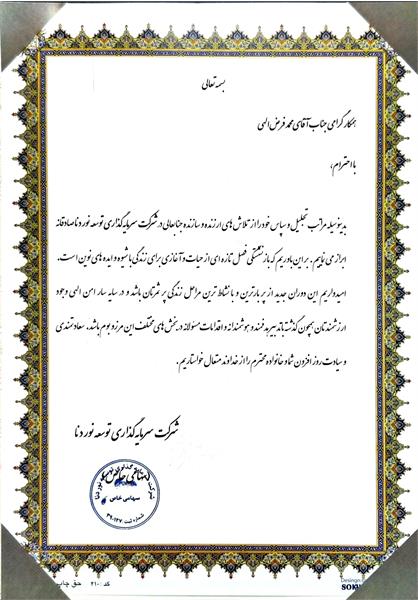 بسمه تعالی
همکار گرامی جناب آقای محمد فرض الهی
با احترام،
بدینوسیله مراتب تجلیل و سپاس خود را از تلاش های ارزنده و سازنده جنابعالی در شرکت سرمایه گذاری توسعه نور دنا صادقانه
ابراز می نماییم. بر این باوریم که بازنشستگی فصل تازه ای از حیات و آغازی برای زندگی با شیوه و ایده های نوین است.
امیدواریم این دوران جدید از پر بارترین و با نشاط ترین مراحل زندگی پر ثمرتان باشد و در سایه سار امن الهی وجود
ارزشمندتان همچون گذشته تدابیر هدفمند و هوشمندانه و اقدامات مسئولانه در بخش های مختلف این مرز و بوم باشد. سعادتمندی
و سیادت روز افزون شما و خانواده محترم را از خداوند متعال خواستاریم.
شرکت سرمایه گذاری توسعه نور دنا
سهامی خاص
شماره ثبت: ۳۹۰۱۳۷
کد: ۲۱۰ حق چاپ
Design